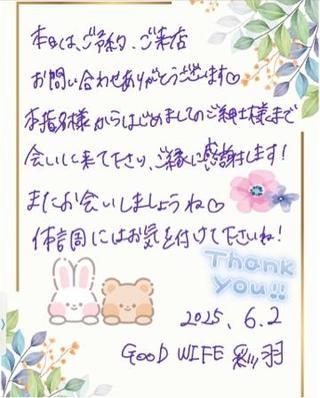 本日は、ご予約、ご来店
お問い合わせありがとうございます♡
本指名様からはじめましてのご紳士様まで
会いに来て下さり、ご縁に感謝します!
またお会いしましょうね♡
体調にはお気を付けて下さいね!
Thank you!!
2025.6.2
GOOD WIFE 彩羽